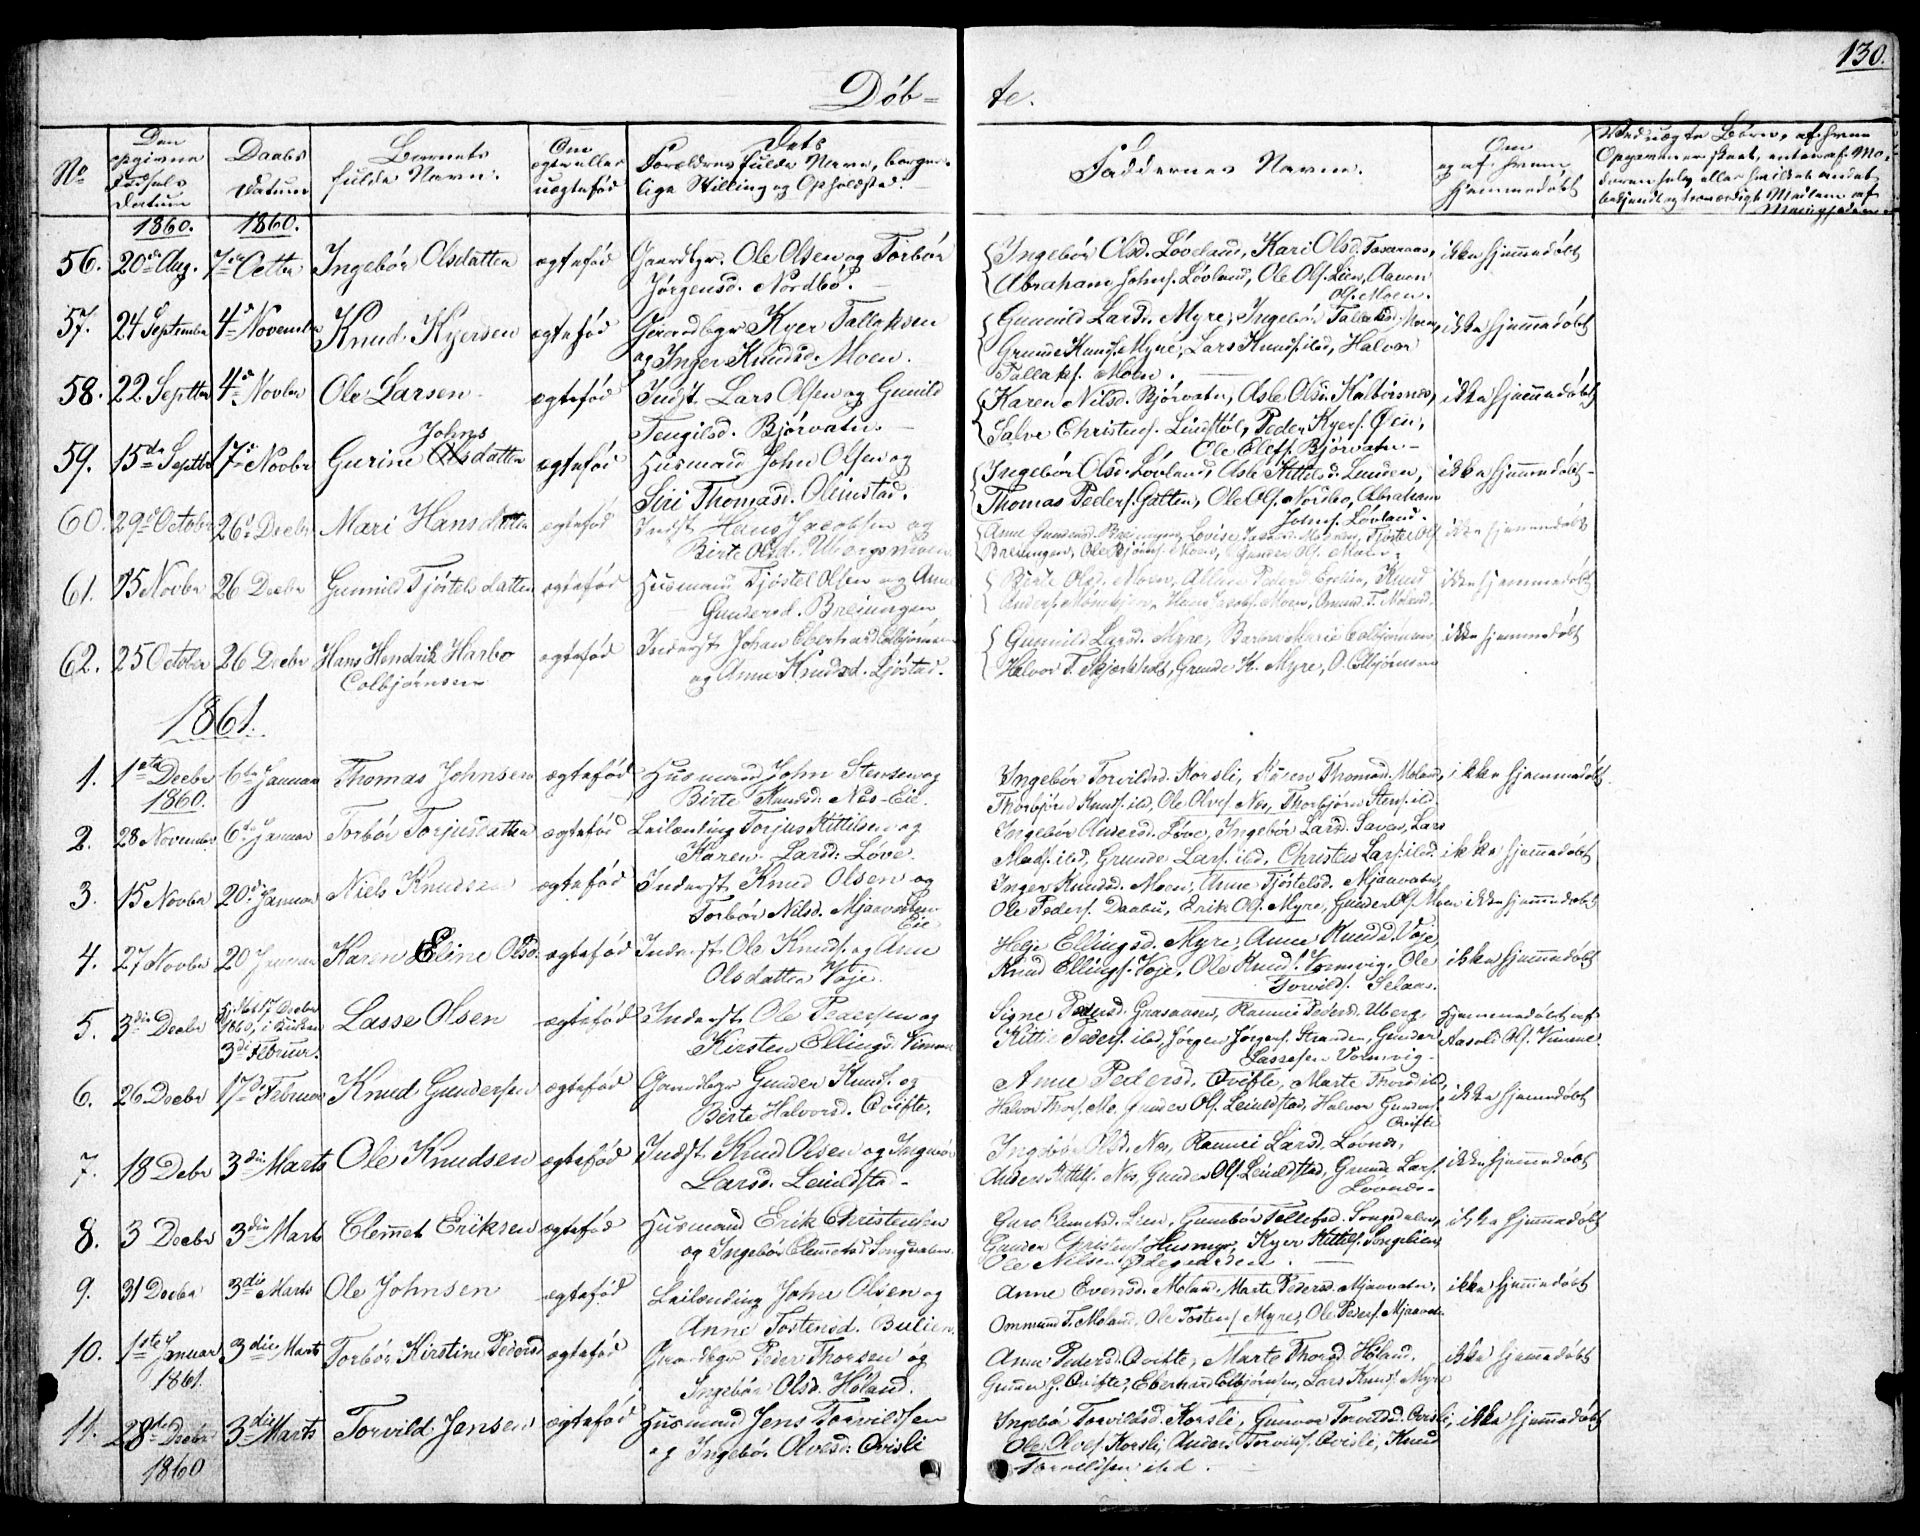 130.
Döb=
te.
No
Den opgivne Födsels Datum
Daabs Datum
Barnets fulde Navn.
Om ægte eller uægtefód
Dets Forældres fulde Navn, borgerlige Stilling og Opholdsted.
Faddernes Navne.
Om og af hvem hjemmedöbt
1860. 1860.
56. 20de Aug. 7de Octbr Ingebór Olsdatter ægtefód Gaardbgr. Ole Olsen og Torbór
Jörgensd. Nordbó.
Ingebór Olsd. Lövland, Kari Olsd.
Abraham Johns. Lövland, Ole Ols. Lien, Aanon
Ols. Moen.
ikke hjemmedöbt
57. 24 Septembr 4de Novembr Knud Kyersen ægtefód Gaardbgr Kyer Tallaksen
og Inger Knudsd. Moen.
Gunnild Larsd. Myre, Ingebór Tallaksd. Moen,
Grunde Knuds. Myre, Lars Knuds. ibd, Halvor
Tallaks. Moen.
ikke hjemmedöbt
58. 22. Septbr 4de Novbr Ole Larsen ægtefód Indst. Lars Olsen og Gunild
Tengilsd. Björvatn.
Karen Nilsd. Björvatn, Aslo Olsd.
Salve Christens. Lindtöl, Peder Kyers. Öen,
Ole Olsen Björvatn
ikke hjemmedöbt
59. 15de Septbr 17de Novbr Gurine Johnsdatter ægtefód Husmand John Olsen og
Siri Thomasd. Olimstad.
Ingebór Olsd. Lövland, Aslo Kittilsd. Lunden,
Thomas Peders. Galten, Ole Ols. Nordbo, Abraham
Johns. Lövland.
ikke hjemmedöbt
60. 29de October 26de Decbr Mari Hansdatter ægtefód Indst. Hans Jacobsen og
Birte Olsd. Ubergsmoen
Anne Gundersd. Breiungen, Lovise Jacobsd. Moland, Tjöstel Ols
Breiungen, Ole Björns. Moen, Gunder Ols. Moen.
ikke hjemmedöbt
61. 15 Novbr 26 Decbr Gunnild Tjöstelsdatter ægtefód Husmand Tjöstel Olsen og Anne
Gundersd. Breiungen
Birte Olsd. Moen, Knud
Hans Jacobs. Moen, Omund T. Moland.
ikke hjemmedöbt
62. 25 October 26 Decbr Hans Hendrik Harbo
Colbjörnsen
ægtefód Inderst Johan Eberhard Colbjörnsen
og Anne Knudsd. Ljöstad.
Gunnild Larsd. Myre, Barbra Marie Colbjörnsen,
Halvor T. Skjerkholt, Grunde K. Myre, O. Colbjörnsen
ikke hjemmedöbt
1861.
1. 1ste Decbr
1860. 6te Januar Thomas Johnsen ægtefód Husmand John Stensen og
Birte Knudsd. Nes-Eie.
Ingebór Torvildsd. Korsli, Thomasd. Moland,
Thorbjörn Knuds. ibd, Ole Olves. Nes, Thorbjörn Stens. ibd.
ikke hjemmedöbt.
2. 28 November 6te Januar Torbór Torjusdatter ægtefód Leilænding Torjus Kittilsen og
Karen Larsd. Löve.
Ingebór Andersd. Löve, Ingebór Larsd. Saven, Lars
Mads. ibd, Grunde Lars. ibd, Christen Lars. ibd.
ikke hjemmedöbt
3. 15 Novbr 20de Januar Niels Knudsen ægtefód Inderst Knud Olsen og
Torbór Nilsd. Mjaavatn
Eie
Inger Knudsd. Moen, Anne Tjöstelsd. Mjaavatn,
Ole Peders. Daabu, Erik Ols. Myre, Gunder Ols. Moen
ikke hjemmedöbt
4. 27 Novbr 20 Januar Karen Eline Olsd. ægtefód Inderst Ole Knuds. og Ann
Olsdatter Voje.
Helje Ellingsd. Myre, Anne Knudsd. Voje,
Knud Ellings. Voje, Ole Knuds. Vormvig, Ole
Torvilds. Selaas.
ikke hjemmedöbt
5. 3die Decbr 17 Decbr
1860, i Kirken
3die Februar. Lasse Olsen ægtefód Inderst Ole Pedersen og
Kirsten Ellingsd. Vimme
Signe Pedersd. Graasaasen, Ramni Pedersd. Uberg,
Kittil Peders. ibd, Jörgen Jörgens. Stranden, Gunder
Lassesen Vormvig.
hjemmedöbt af
Aasold Ols. Vimme.
6. 26 Decbr 17de Februar Knud Gundersen ægtefód Gaardbgr Gunder Knuds. og
Birte Halvorsd. Qvifte.
Anne Pedersd. Qvifte, Marte Thorsd. ibd,
Halvor Thors. Mo, Gunder Ols. Leiuldstad, Halvor Gunders.
Qvifte
ikke hjemmedöbt
7. 18 Debr 3die Marts Ole Knudsen ægtefód Indst. Knud Olsen og Ingebór
Larsd. Leiuldstad.
Ingebór Olsd. Nes, Ramni Larsd. Lövnes,
Anders Kittils. Nes, Gunder Ols. Leiuldstad, Grunde Lars.
Lövnes.
ikke hjemmedöbt
8. 3 Decbr 3die Marts Clemet Eriksen ægtefód Husmand Erik Christensen
og Ingebór Clemetsd. Songedalen
Guro Clemetsd. Lien, Gunebór Tellefsd. Songedalen,
Gunder Christens. Husmyr, Kyer Kittils. Songelien,
Ole Nilsen Ödegaarden.
ikke hjemmedöbt
9. 31 Decbr 3die Marts Ole Johnsen ægtefód Leilænding John Olsen og
Anne Tostensd. Bulien.
Anne Evensd. Moland, Marte Pedersd. Mjaavatn,
Ommund T. Moland, Ole Tostens. Myre, Ole Peders. Mjaavatn
ikke hjemmedöbt
10. 1ste Januar
1861. 3die Marts Torbór Kirstine Pedersd ægtefód Gaardbgr Peder Thorsen og
Ingebór Olsd. Höland.
Anne Pedersd. Qvifte, Marte Thorsd. Höland,
Gunder G. Qvifte, Eberhard Colbjörnsen, Lars Knuds. Myre
ikke hjemmedöbt
11. 28de Decbr
1860 3die Marts Torvild Jensen ægtefód Husmand Jens Torvildsen
og Ingebór Olvesd. Qvisli
Ingebór Torvildsd. Korsli, Gunvor Torvildsd. Qvisli,
Ole Olves. Korsli, Anders Torvilds. Qvisli, Knud
Torvildsen ibd.
ikke hjemmedöbt